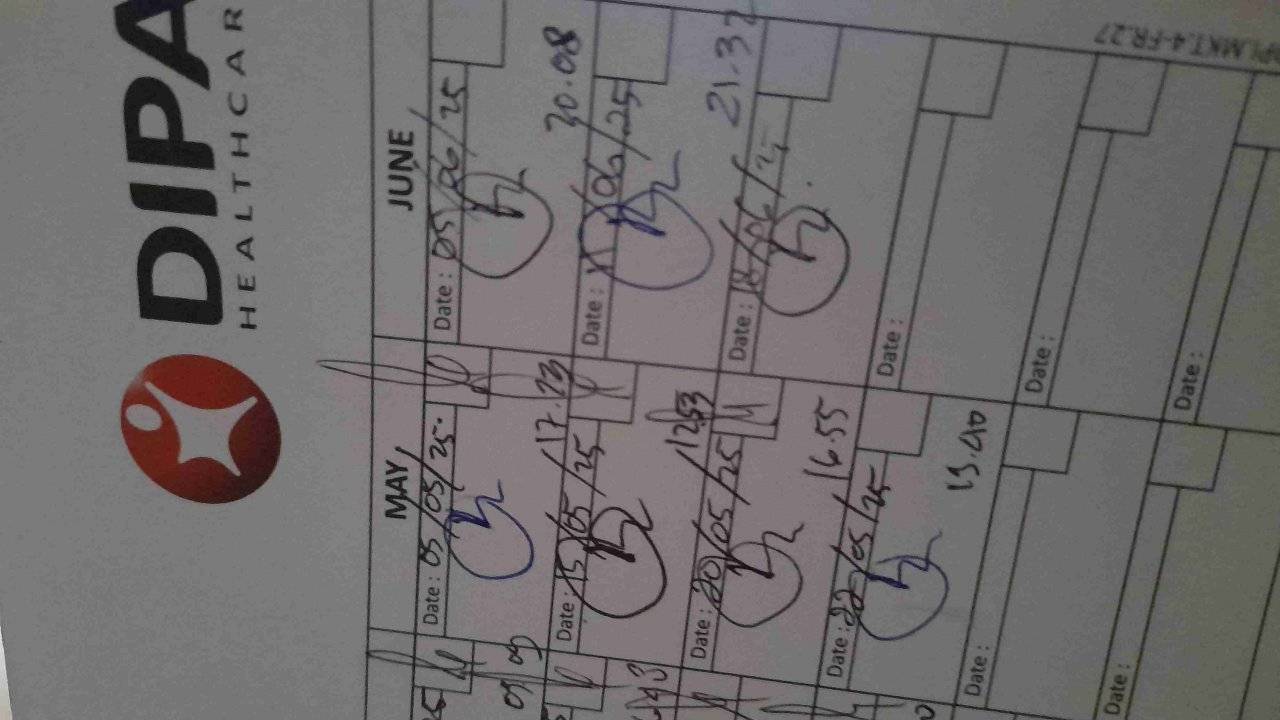 DIPA
HEALTHCAR
MAY
JUNE
Date : 05/05/25.
Date : 05/06/25
17.23
30.08
Date : 15/05/25
Date : 11/06/25
12.53
21.32
Date : 20/05/25
Date : 18/06/25
16.55
Date : 22/05/25
Date :
13.40
Date :
Date :
Date :
Date :
PI.MKT.4-FR.27